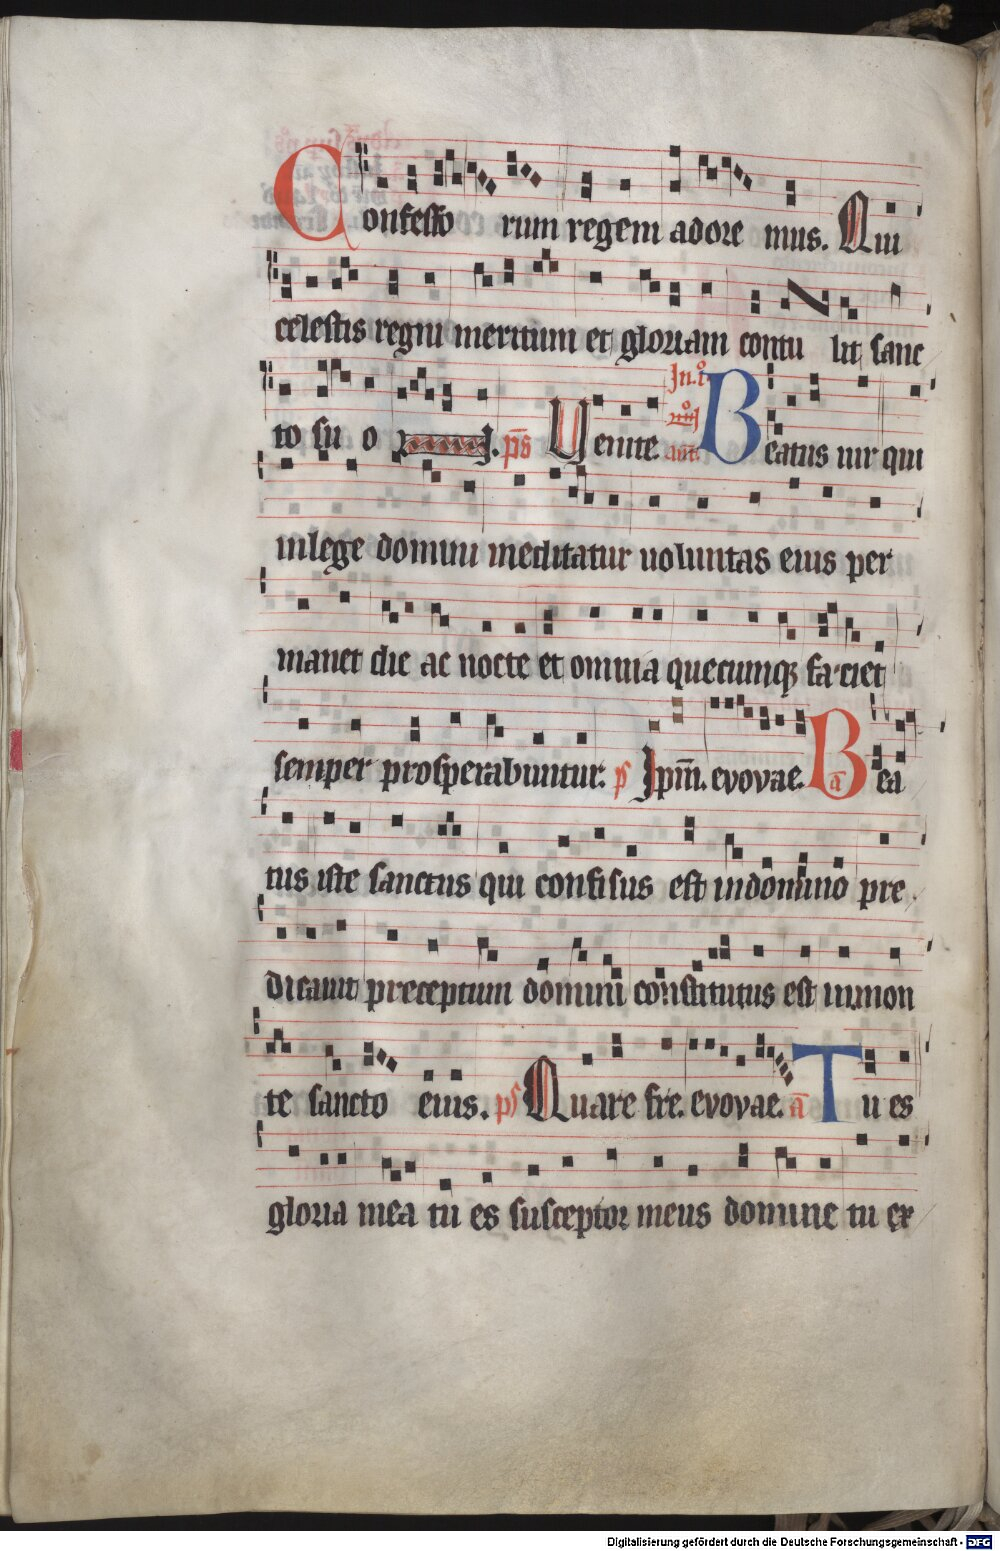 Confesso rum regem adore mus. Qui
celestis regni meritum et gloriam contu lit sanc
to su o . p̄s Uenite. In.i.º an̄t. Beatus uir qui
inlege domini meditatur uoluntas eius per
manet die ac nocte et omnia quecumq3 faciet
semper prosperabuntur. ps Ipm̄. evovae. ā Bea
tus iste sanctus qui confisus est indomino pre
dicauit preceptum domini constitutus est inmon
te sancto eius. ps Quare fre. evovae. ā Tu es
gloria mea tu es susceptor meus domine tu ex
Digitalisierung gefördert durch die Deutsche Forschungsgemeinschaft - DFG